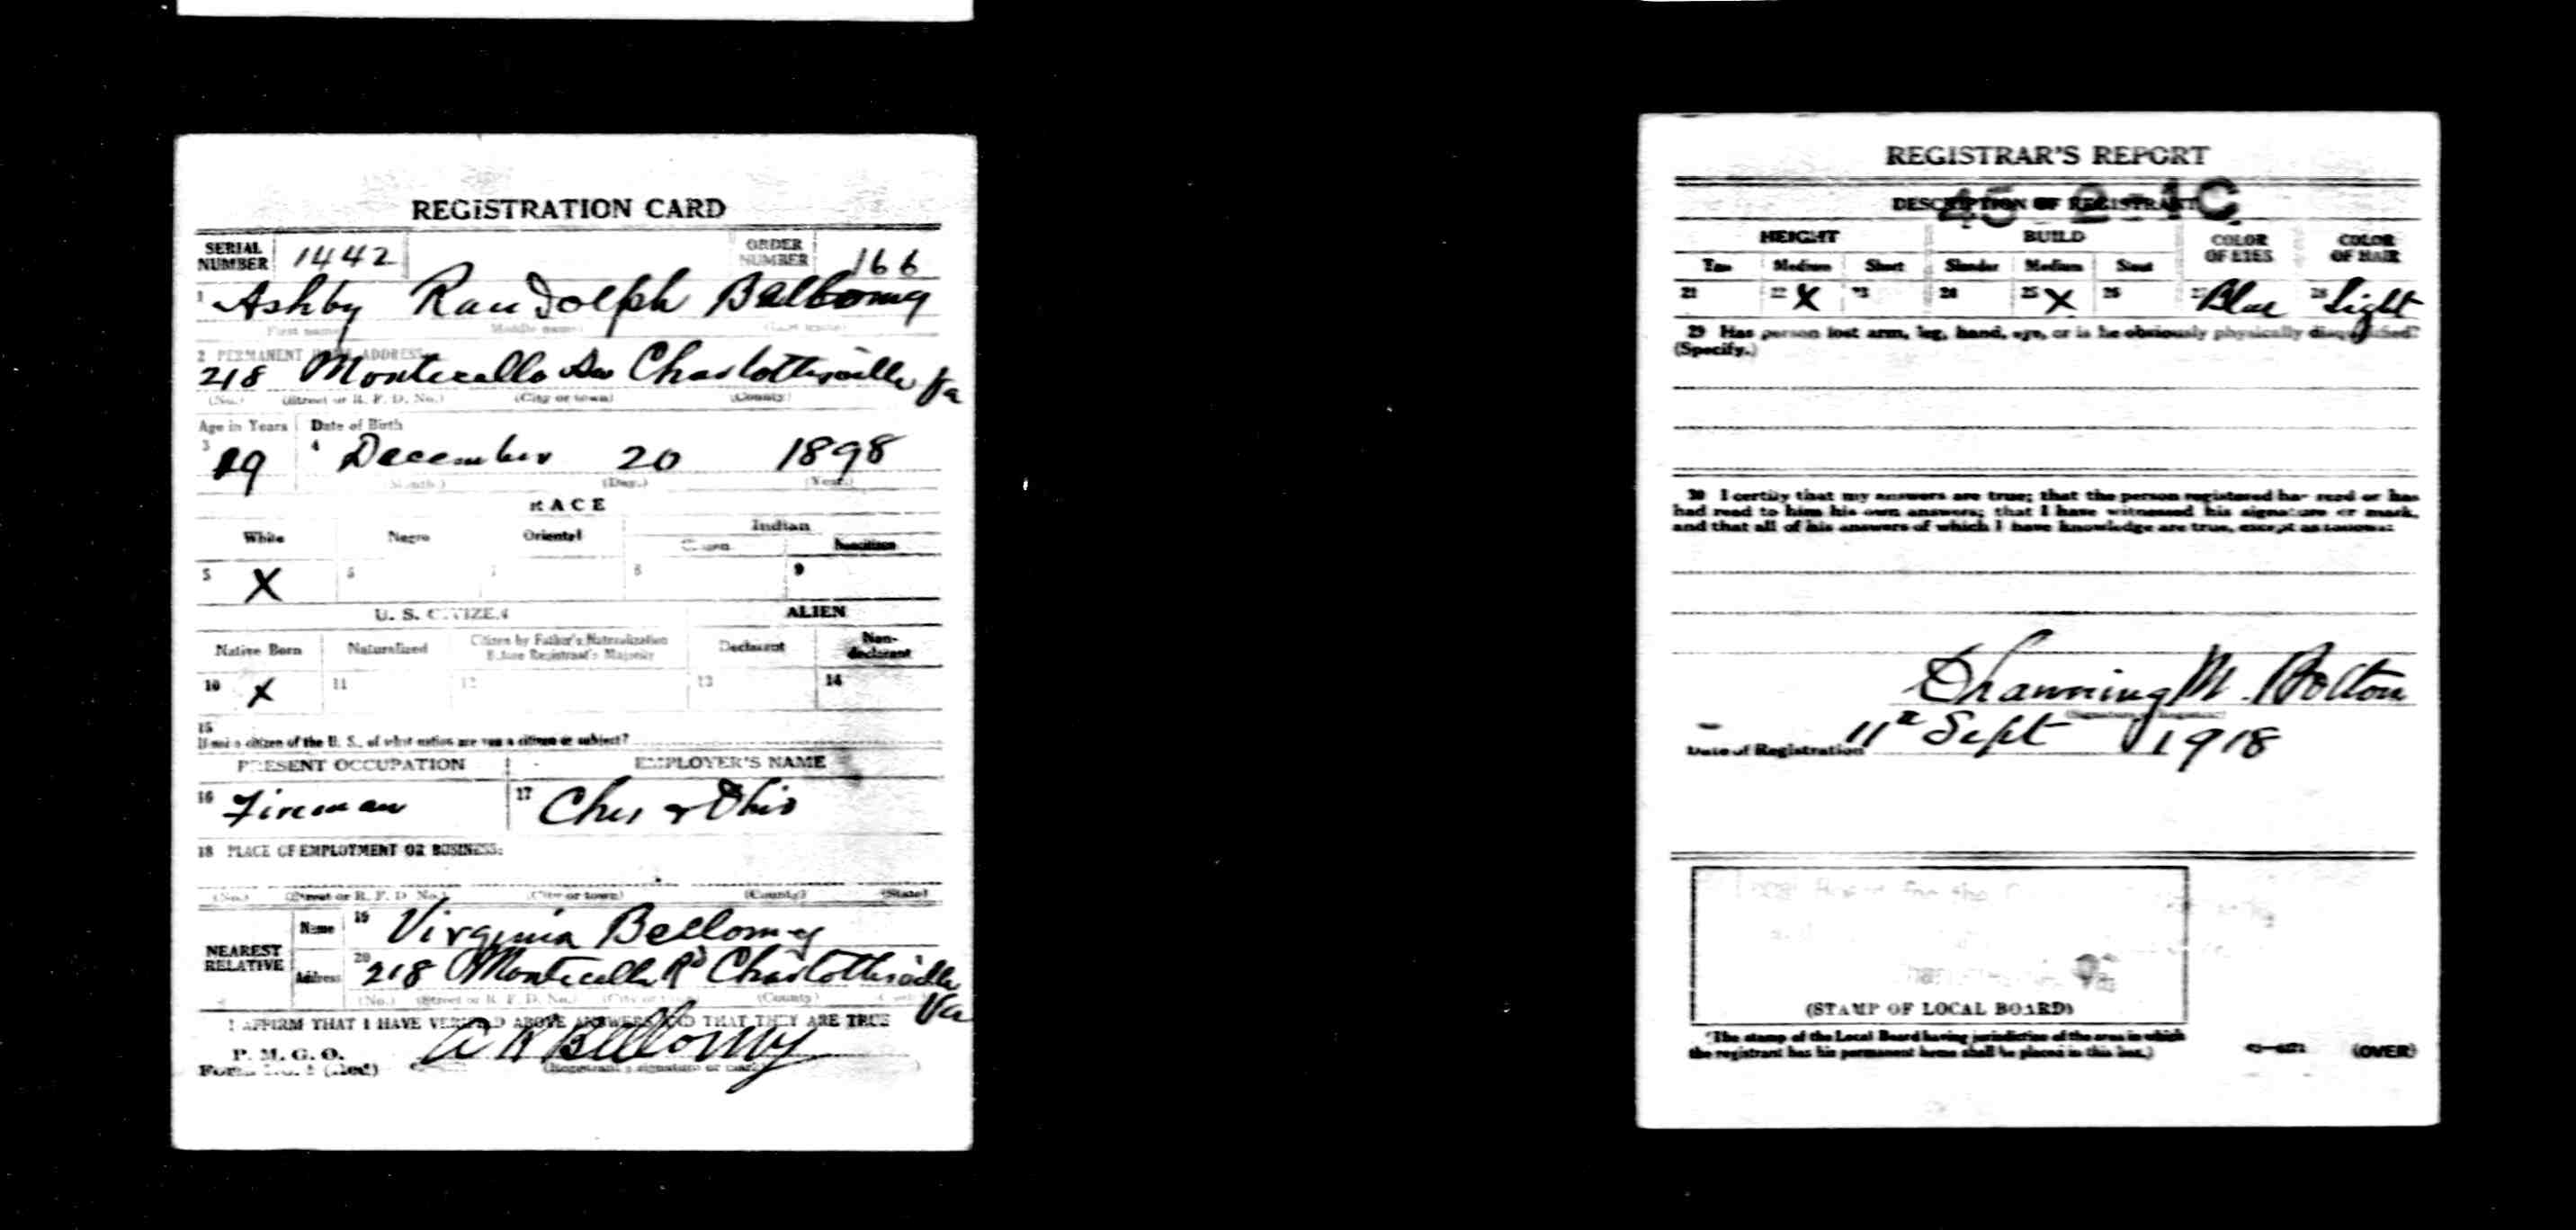 REGISTRATION CARD
SERIAL NUMBER 1442 ORDER NUMBER 166
1 Ashby Randolph Bellomy
(First name) (Middle name) (Last name)
2 PERMANENT HOME ADDRESS:
218 Monticello Av Charlottesville Va
(No.) (Street or R. F. D. No.) (City or town) (County)
Age in Years Date of Birth
3 19 4 December 20 1898
(Month.) (Day.) (Year.)
RACE
White Negro Oriental Indian
Citizen Noncitizen
5 X 6 7 8 9
U. S. CITIZEN ALIEN
Native Born Naturalized Citizen by Father's Naturalization Before Registrant's Majority Declarant Non-declarant
10 X 11 12 13 14
15
If not a citizen of the U. S., of what nation are you a citizen or subject?
PRESENT OCCUPATION EMPLOYER'S NAME
16 Fireman 17 Ches & Ohio
18 PLACE OF EMPLOYMENT OR BUSINESS:
(No.) (Street or R. F. D. No.) (City or town) (County) (State)
NEAREST RELATIVE Name 19 Virginia Bellomy
Address 20 218 Monticello Rd Charlottesville Va
(No.) (Street or R. F. D. No.) (City or town) (County)
I AFFIRM THAT I HAVE VERIFIED ABOVE ANSWERS AND THAT THEY ARE TRUE
P. M. G. O.
Form No. 1 (Red) A R Bellomy
(Registrant's signature or mark)
REGISTRAR'S REPORT
45-2-1 C
DESCRIPTION OF REGISTRANT
HEIGHT BUILD COLOR OF EYES COLOR OF HAIR
Tall Medium Short Slender Medium Stout
21 22 X 23 24 25 X 26 27 Blue 28 Light
29 Has person lost arm, leg, hand, eye, or is he obviously physically disqualified?
(Specify.)
30 I certify that my answers are true; that the person registered has read or has
had read to him his own answers; that I have witnessed his signature or mark,
and that all of his answers of which I have knowledge are true, except as follows:
Channing M. Bolton
(Signature of Registrar)
Date of Registration 11th Sept 1918
Local Board for the
Va
(STAMP OF LOCAL BOARD)
(The stamp of the Local Board having jurisdiction of the area in which
the registrant has his permanent home shall be placed in this box.)
(OVER)